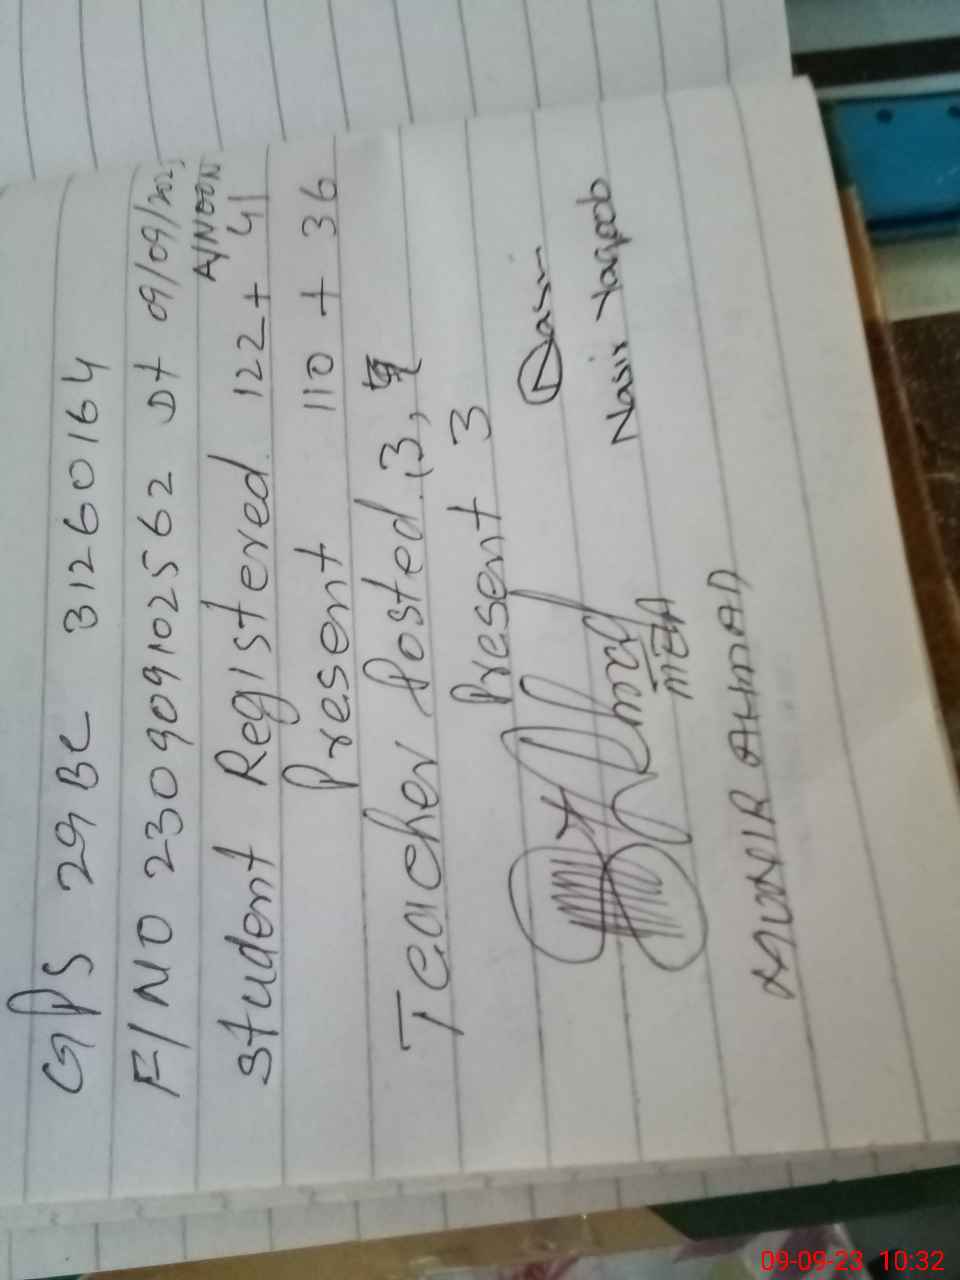 GPS 29 BC 31260164
F/NO 23090910 2562 Dt 09/09/202
A/NOON
Student Registered 122 + 41
Present 110 + 36
Teacher Posted 3,
Present 3
Nasir Yaqoob
MEA
MUNIR AHMAD
09-09-23 10:32